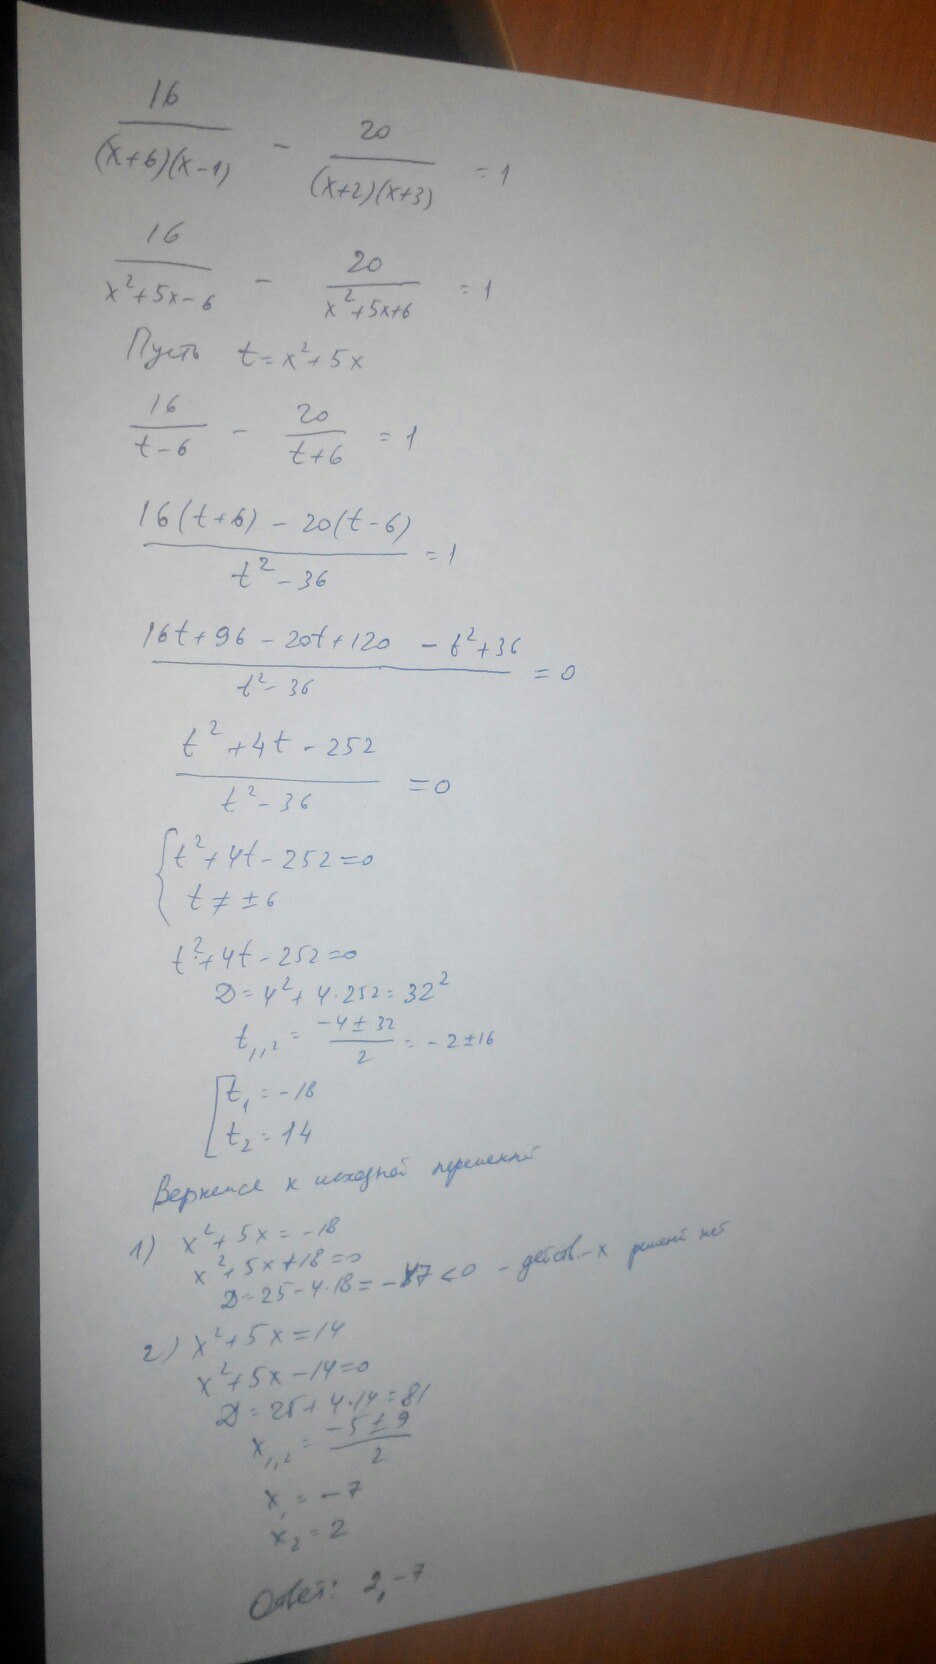 16/((x+6)(x-1)) - 20/((x+2)(x+3)) = 1
16/(x²+5x-6) - 20/(x²+5x+6) = 1
Пусть t = x²+5x
16/(t-6) - 20/(t+6) = 1
(16(t+6) - 20(t-6))/(t²-36) = 1
(16t+96-20t+120 -t²+36)/(t²-36) = 0
(t²+4t-252)/(t²-36) = 0
{t²+4t-252=0
t ≠ ±6
t²+4t-252=0
D=4²+4·252=32²
t₁,₂ = (-4±32)/2 = -2±16
[t₁ = -18
t₂ = 14
Вернемся к исходной переменной
1) x²+5x = -18
x²+5x+18=0
D=25-4·18=-47<0 - действ-х решений нет
2) x²+5x=14
x²+5x-14=0
D=25+4·14=81
x₁,₂ = (-5±9)/2
x₁ = -7
x₂ = 2
Ответ: 2, -7